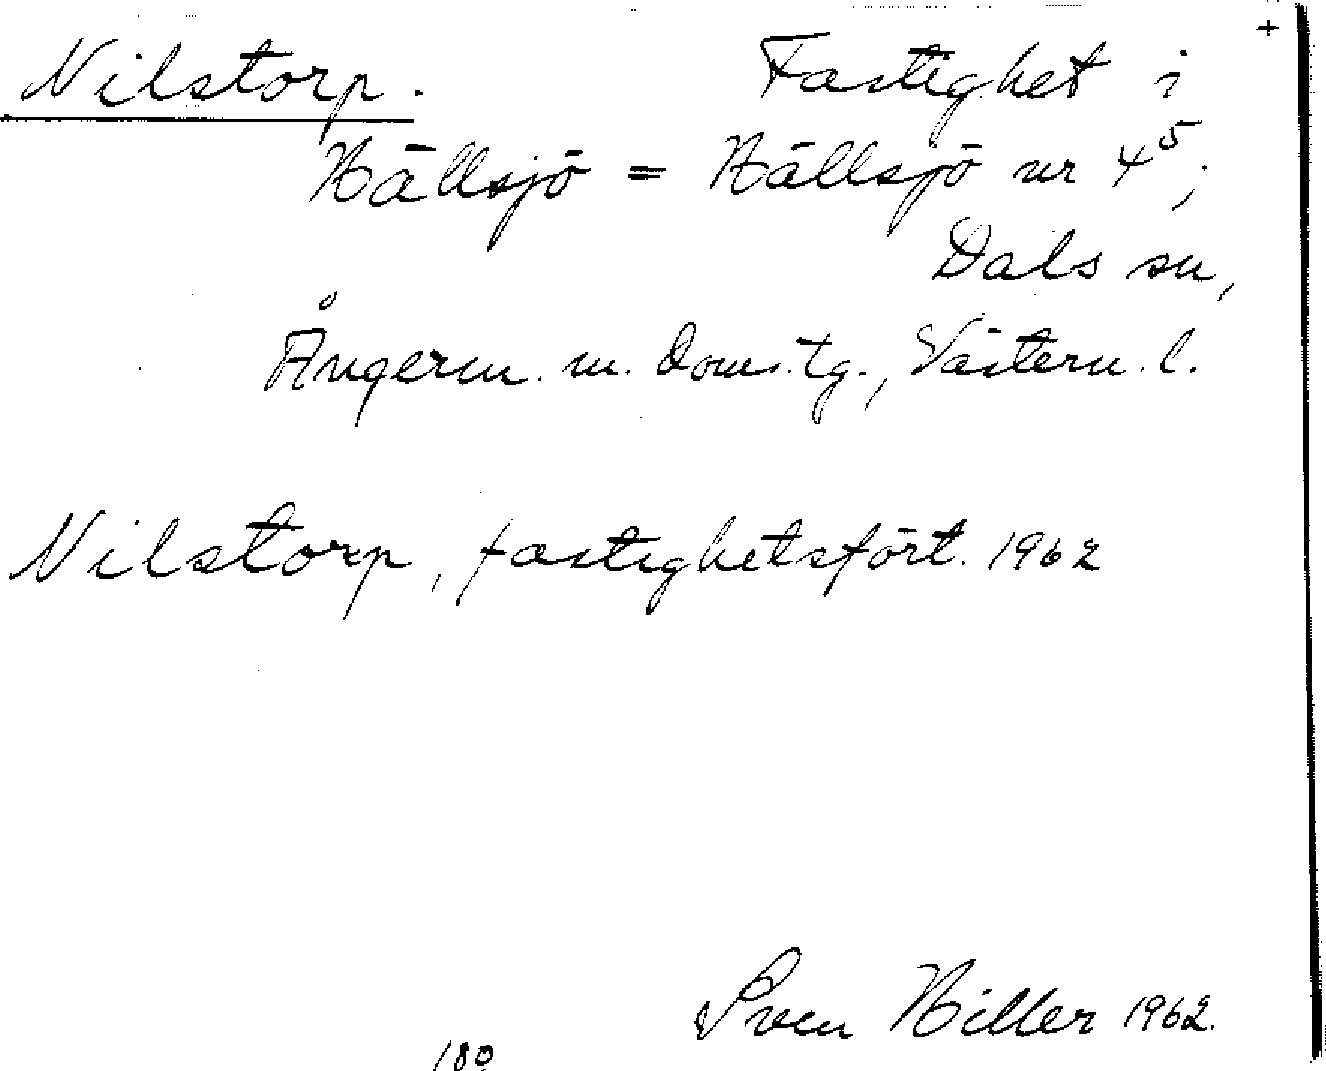 Nilstorp. Fastighet i
Hällsjö = Hällsjö nr 4⁵;
Dals sn,
Ångerm. m. doms.tg., Västern. l.
Nilstorp, fastighetsfört. 1962
Sven Hiller 1962.
180